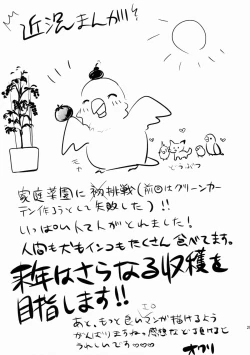 近況まんが
どうぶつ
家庭菜園に初挑戦(前回はグリーンカー
テン作ろうとして失敗した)!!
いっぱいいんげんがとれました!
人間も犬もインコもたくさん食べてます。
来年はさらなる収穫を
目指します!!
あと、もっと良いマンガが描けるよう
がんばりますね。感想など頂けると
うれしいです